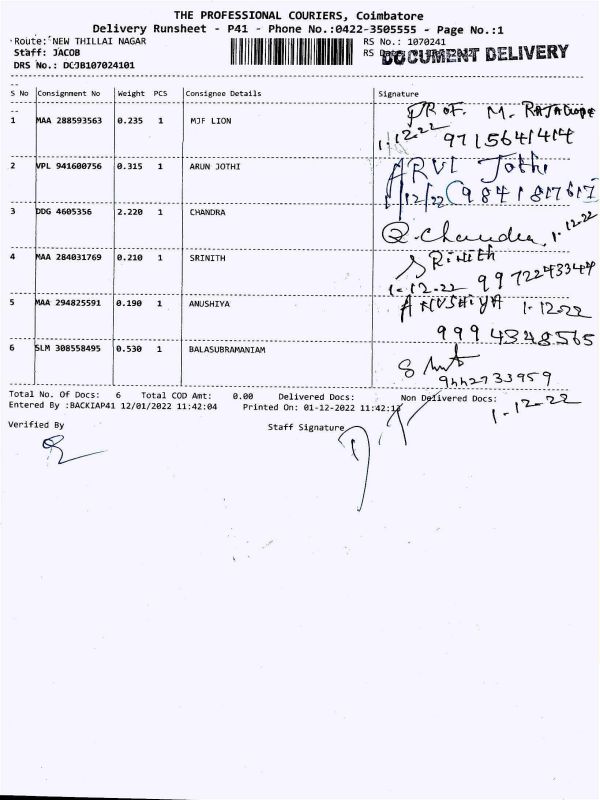 THE PROFESSIONAL COURIERS, Coimbatore
Delivery Runsheet - P41 - Phone No.:0422-3505555 - Page No.:1
Route: NEW THILLAI NAGAR RS No.: 1070241
Staff: JACOB RS DOCUMENT DELIVERY
DRS No.: DCJB107024101
S No Consignment No Weight PCS Consignee Details Signature
1 MAA 288593563 0.235 1 MJF LION PROF. M. 1.12.22 9715641414
2 VPL 941600756 0.315 1 ARUN JOTHI ARVI Jothi 1/12/22 9841817617
3 DDG 4605356 2.220 1 CHANDRA R. Chandra, 1-12-22
4 MAA 284031769 0.210 1 SRINITH SRiNith 1-12-22 9972243344
5 MAA 294825591 0.190 1 ANUSHIYA ANUSHIYA 1-12-22
9994348565
6 SLM 308558495 0.530 1 BALASUBRAMANIAM 9442733959
Total No. Of Docs: 6 Total COD Amt: 0.00 Delivered Docs: Non Delivered Docs:
Entered By :BACKIAP41 12/01/2022 11:42:04 Printed On: 01-12-2022 11:42:13 1-12-22
Verified By Staff Signature